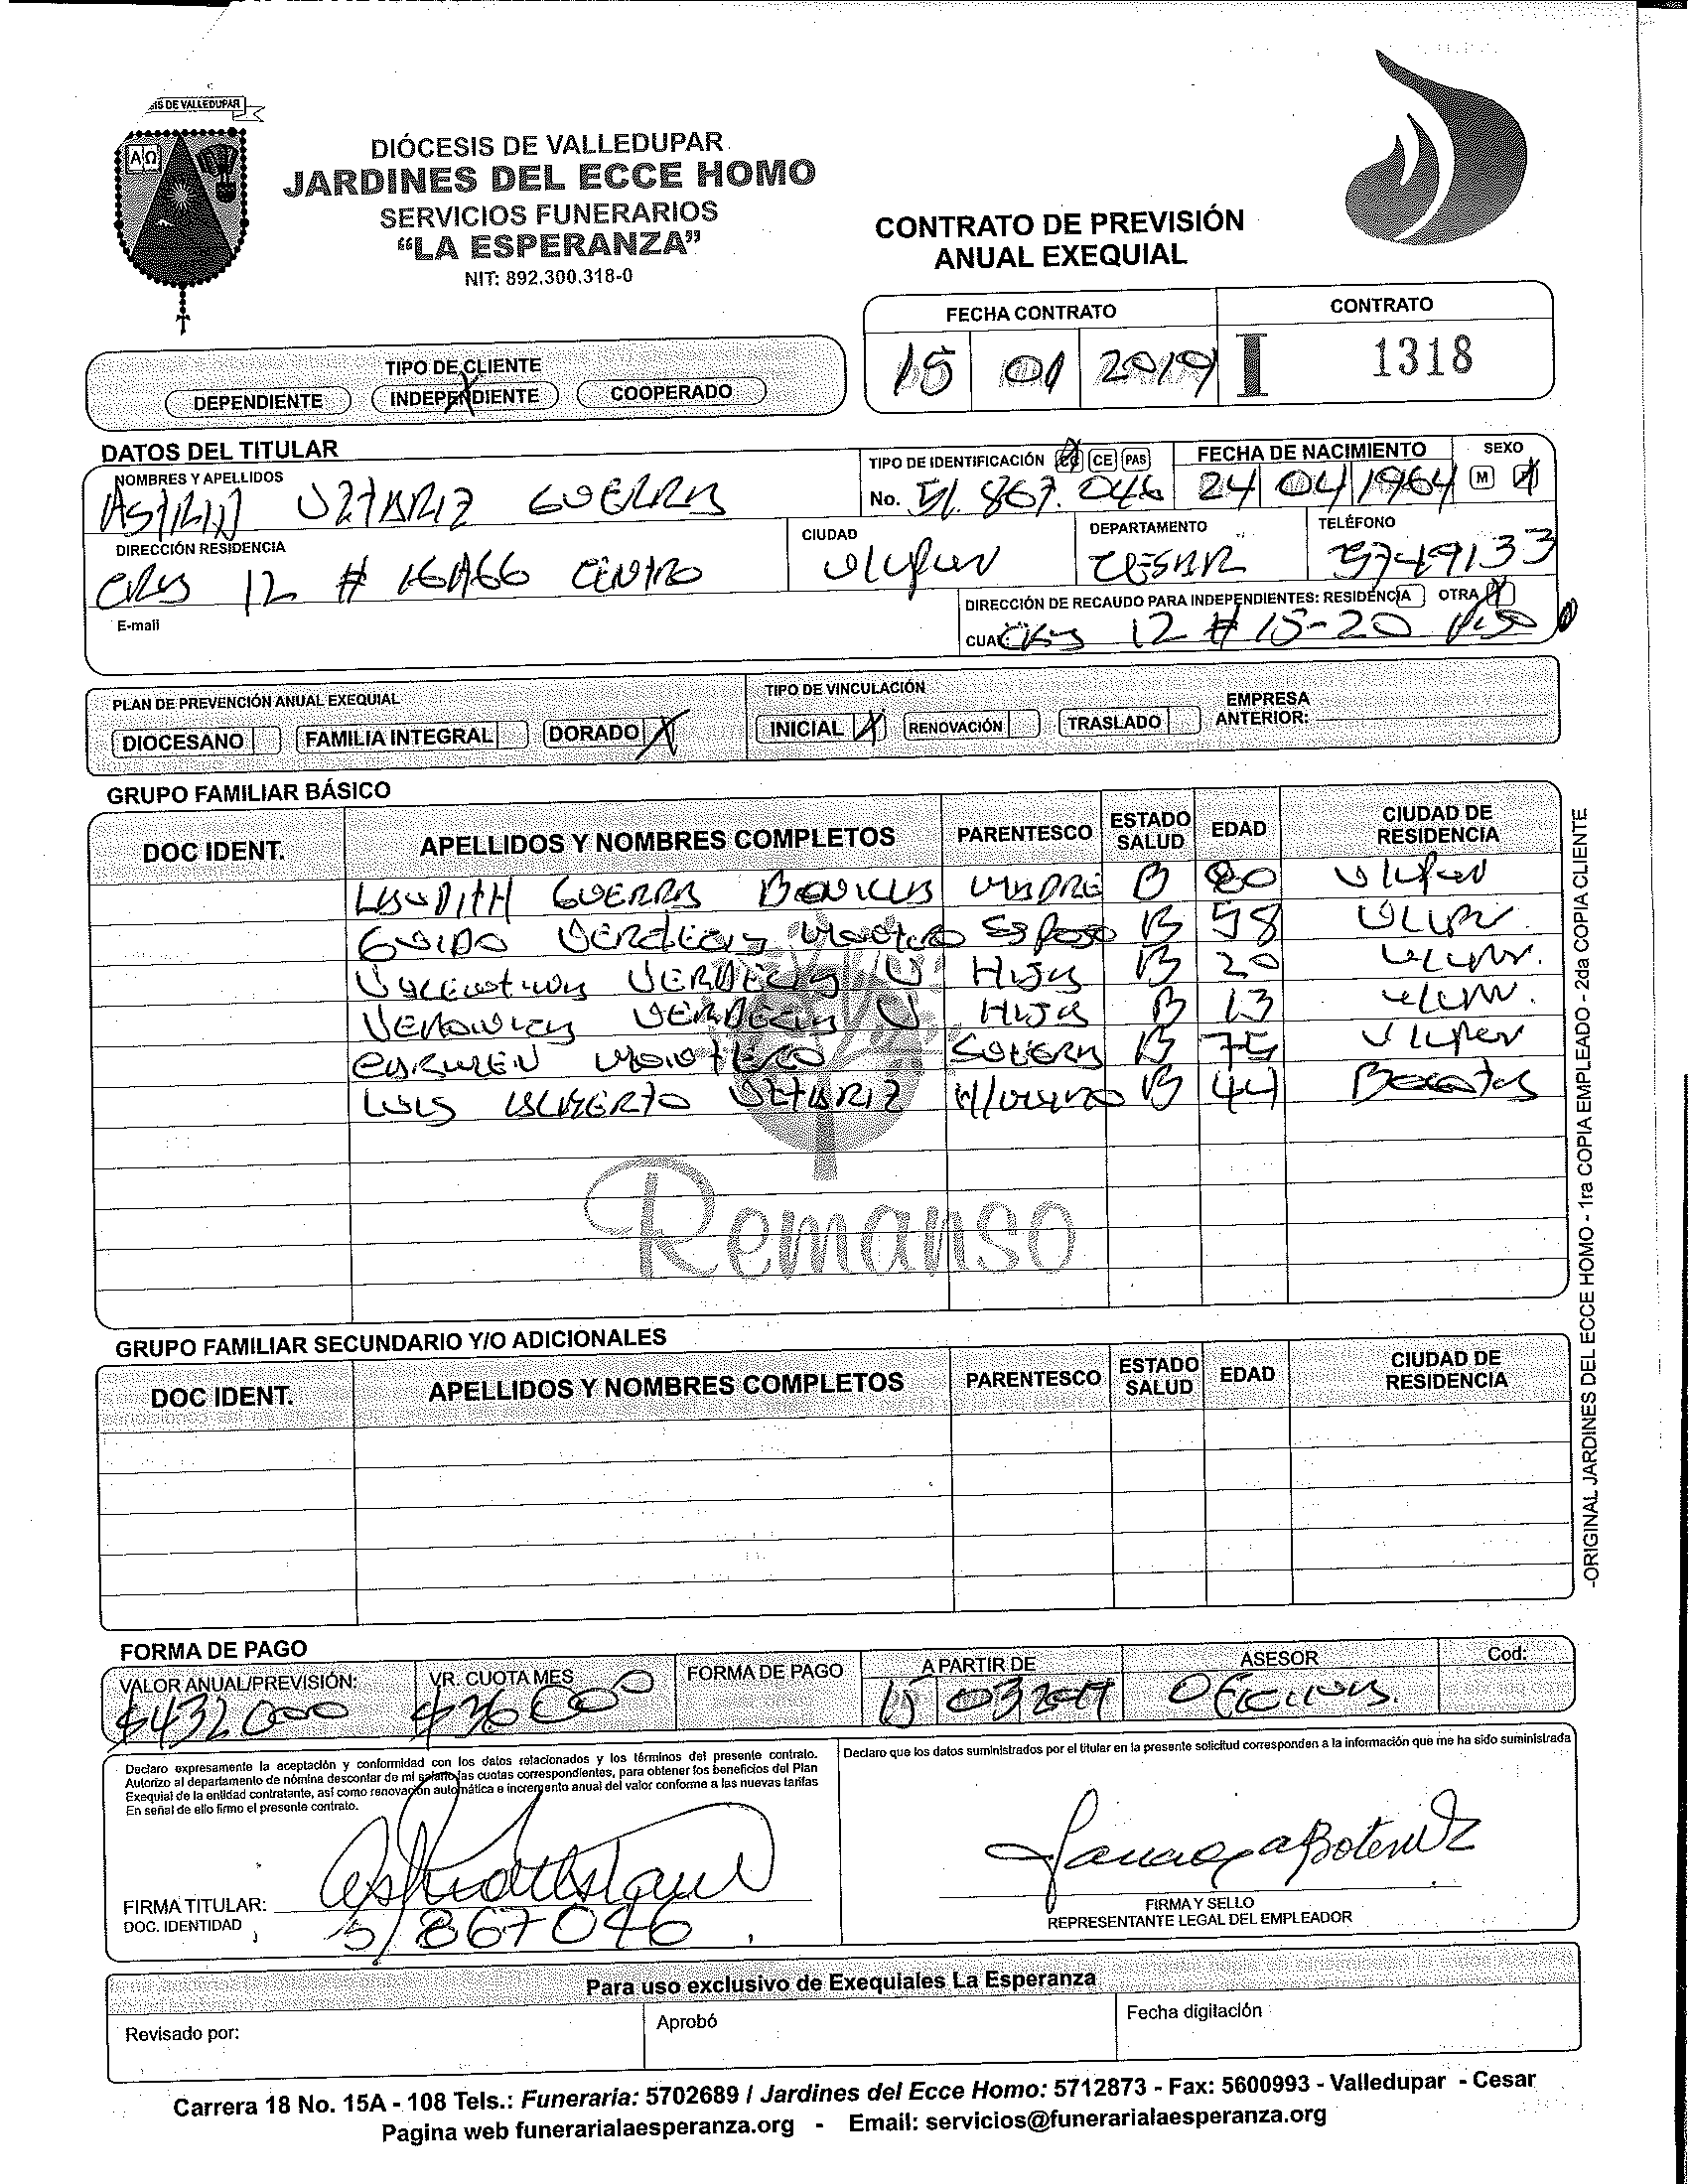 IS DE VALLEDUPAR
A Ω
DIÓCESIS DE VALLEDUPAR
JARDINES DEL ECCE HOMO
SERVICIOS FUNERARIOS
“LA ESPERANZA”
NIT: 892.300.318-0
CONTRATO DE PREVISIÓN
ANUAL EXEQUIAL
FECHA CONTRATO CONTRATO
15 01 2019 I 1318
TIPO DE CLIENTE
DEPENDIENTE INDEPENDIENTE X COOPERADO
DATOS DEL TITULAR
NOMBRES Y APELLIDOS TIPO DE IDENTIFICACIÓN CE PAS FECHA DE NACIMIENTO SEXO
UZTARIZ GUERRA No. 51.867.046 24 04 1964 M
DIRECCIÓN RESIDENCIA CIUDAD DEPARTAMENTO TELÉFONO
CRA 12 # 16A66 CENTRO VLLPAR CESAR 5749133
E-mail
DIRECCIÓN DE RECAUDO PARA INDEPENDIENTES: RESIDENCIA OTRA X
CUAL: CRA 12 # 15-20 PISO
PLAN DE PREVENCIÓN ANUAL EXEQUIAL TIPO DE VINCULACIÓN EMPRESA
DIOCESANO FAMILIA INTEGRAL DORADO X INICIAL X RENOVACIÓN TRASLADO ANTERIOR:
GRUPO FAMILIAR BÁSICO
DOC IDENT. APELLIDOS Y NOMBRES COMPLETOS PARENTESCO ESTADO SALUD EDAD CIUDAD DE RESIDENCIA
GUERRA MADRE B 80 VLLPAR
GUIDO VERDECIA MONTERO ESPOSO B 58 VLLPAR
VALENTINA VERDECIA U HIJA B 20 VLLPAR.
VERONICA VERDECIA U HIJA B 13 VLLPAR.
CARMEN MONTERO SUEGRA B 75 VLLPAR
LUIS ALBERTO UZTARIZ B 44 BOGOTA
Remanso
GRUPO FAMILIAR SECUNDARIO Y/O ADICIONALES
DOC IDENT. APELLIDOS Y NOMBRES COMPLETOS PARENTESCO ESTADO SALUD EDAD CIUDAD DE RESIDENCIA
-ORIGINAL JARDINES DEL ECCE HOMO - 1ra COPIA EMPLEADO - 2da COPIA CLIENTE
FORMA DE PAGO
VALOR ANUAL/PREVISIÓN: VR. CUOTA MES FORMA DE PAGO A PARTIR DE ASESOR Cod:
$432000 $36000 15 03 2019 OFICINA.
Declaro expresamente la aceptación y conformidad con los datos relacionados y los términos del presente contrato.
Autorizo al departamento de nómina descontar de mi salario las cuotas correspondientes, para obtener los beneficios del Plan
Exequial de la entidad contratante, así como renovación automática e incremento anual del valor conforme a las nuevas tarifas
En señal de ello firmo el presente contrato.
Declaro que los datos suministrados por el titular en la presente solicitud corresponden a la información que me ha sido suministrada
FIRMA TITULAR:
DOC. IDENTIDAD 51867046
FIRMA Y SELLO
REPRESENTANTE LEGAL DEL EMPLEADOR
Para uso exclusivo de Exequiales La Esperanza
Revisado por: Aprobó Fecha digitación
Carrera 18 No. 15A - 108 Tels.: Funeraria: 5702689 / Jardines del Ecce Homo: 5712873 - Fax: 5600993 - Valledupar - Cesar
Pagina web funerarialaesperanza.org - Email: servicios@funerarialaesperanza.org